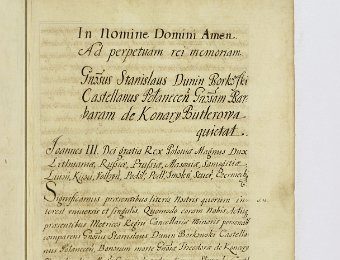 In Nomine Domini Amen.
Ad perpetuam rei memoriam.
Gnõsus Stanislaus Dunin Borkoſki
Castellanus Połanecen̄ Gnõsam Bar
baram de Konary Butlerowa
quietat.
Joannes III. Dei gratia Rex Poloniæ Magnus Dux
Lithuaniæ, Russiæ, Prussiæ, Masoviæ, Samogitiæ
Livon, Kijov, Volhyn, Podol, Podl, Smolen, Sever,
Significamus præsentibus literis Nostris quorum in-
terest universis et singulis. Quomodo coram Nobis, Actisq
præsentibus Metrices Regni Cancellariæ Minoris personal
comparens Gnõsus Stanislaus Dunin Borkowski Castella
nus Połanecen, Bonorum morte Gnõsæ Theodoræ de Konary